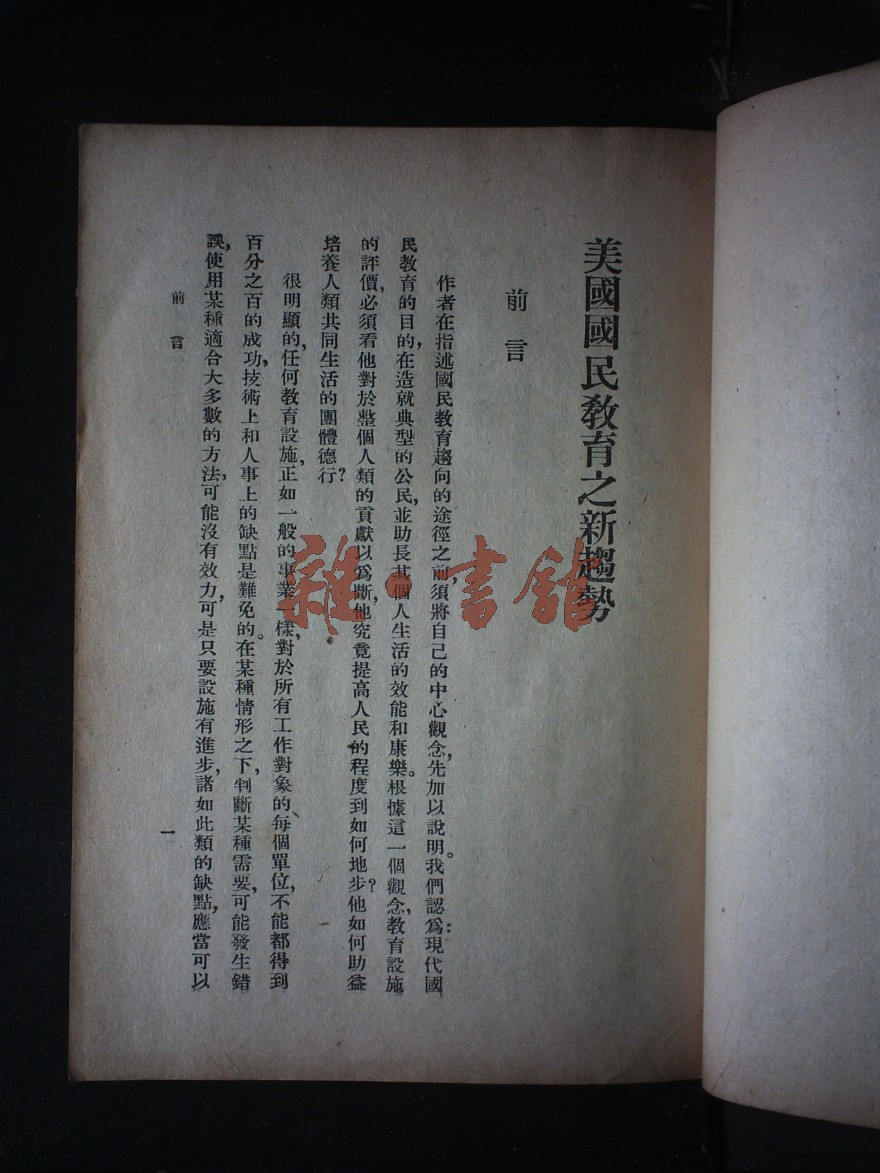 美國國民教育之新趨勢
前言
作者在指述國民教育趨向的途徑之前,須將自己的中心觀念,先加以說明。我們認爲:現代國
民教育的目的,在造就典型的公民,並助長其個人生活的效能和康樂。根據這一個觀念,教育設施
的評價,必須看他對於整個人類的貢獻以爲斷,他究竟提高人民的程度到如何地步?他如何助益
培養人類共同生活的團體德行?
很明顯的,任何教育設施,正如一般的事業一樣,對於所有工作對象的、每個單位,不能都得到
百分之百的成功,技術上和人事上的缺點是難免的。在某種情形之下,判斷某種需要,可能發生錯
誤,使用某種適合大多數的方法,可能沒有效力,可是只要設施有進步,諸如此類的缺點,應當可以
前言
一
雜·書館